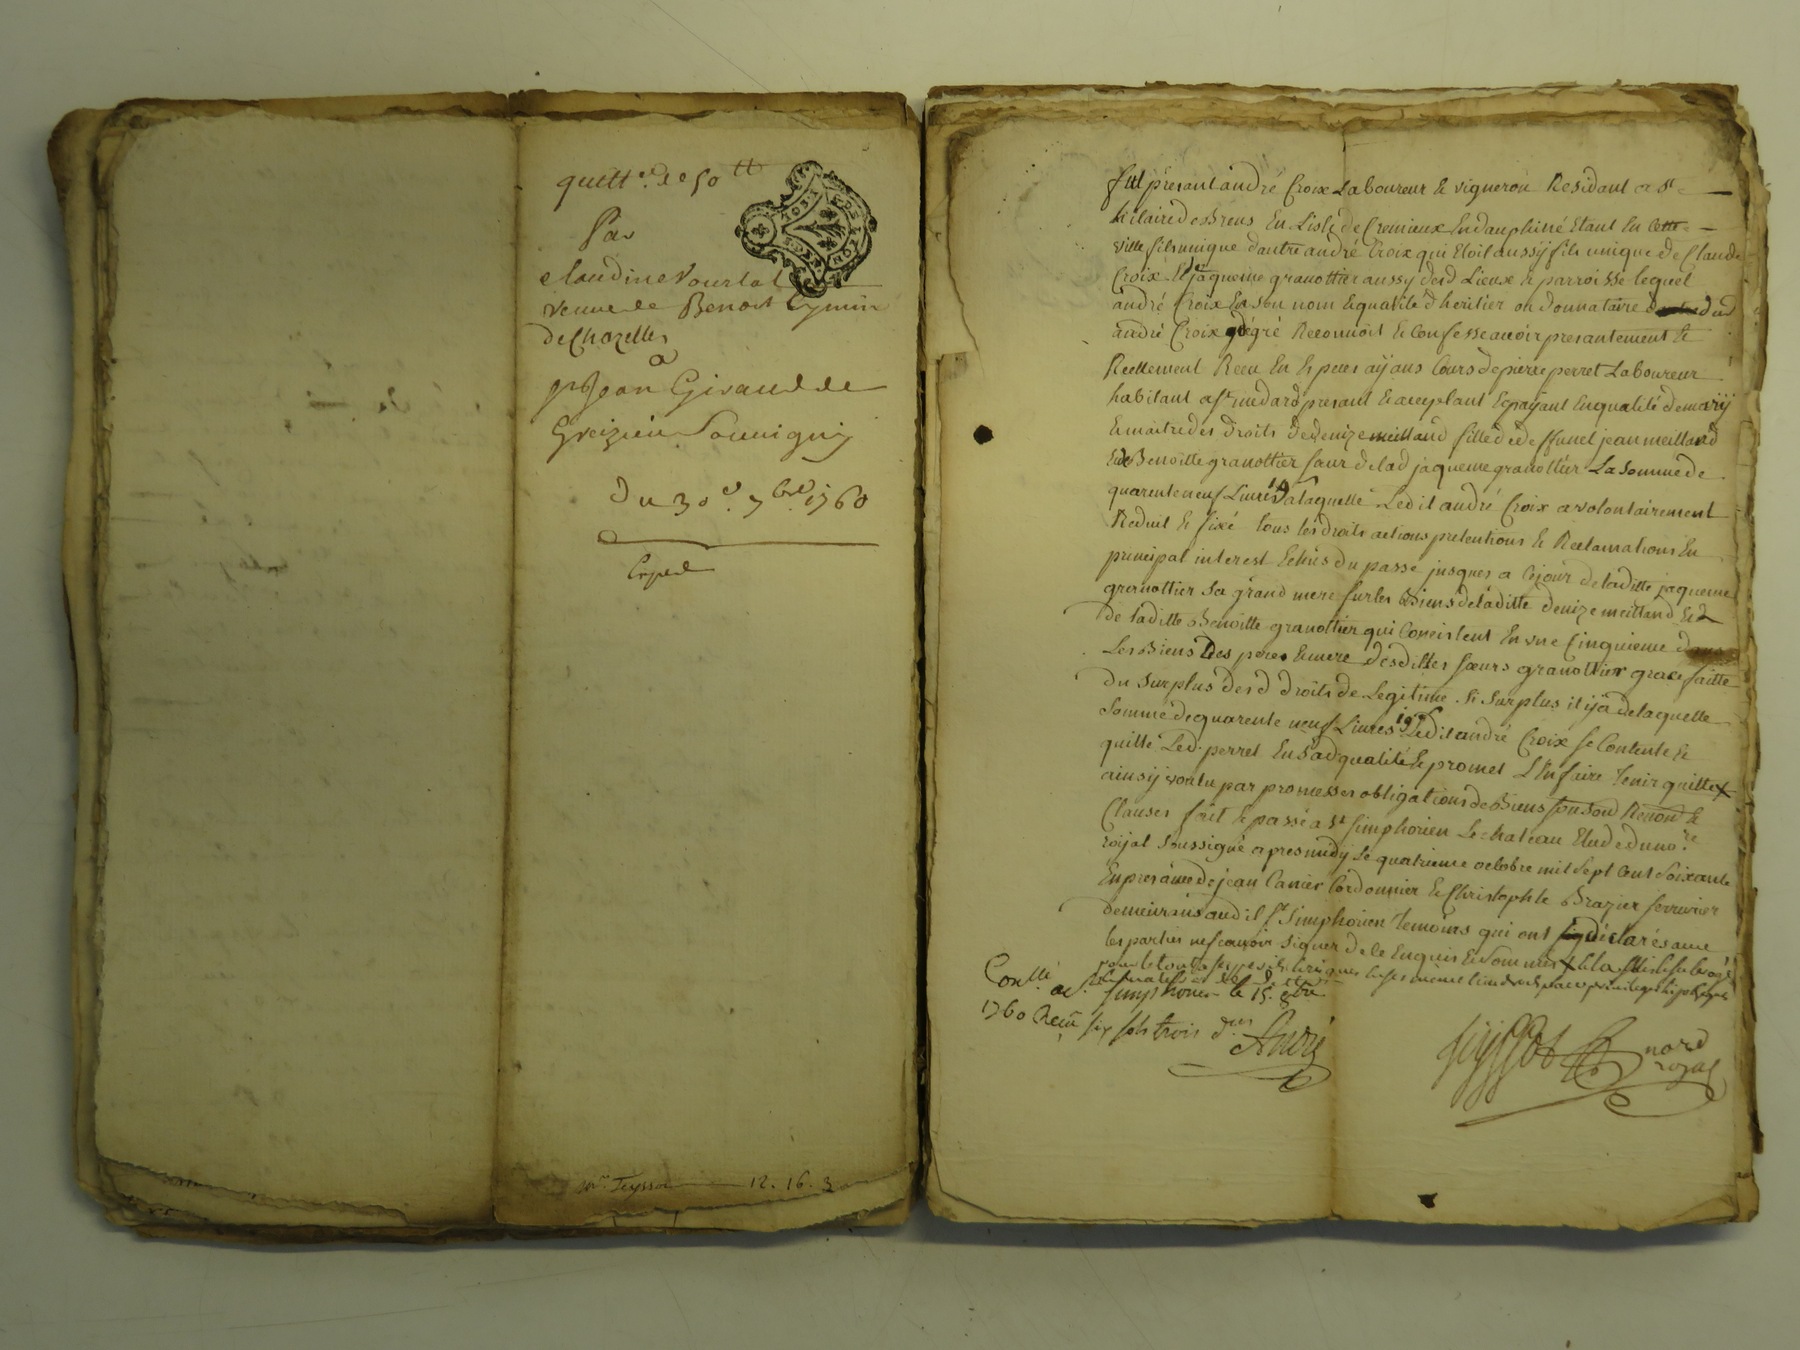 quitt.ce de 50 tt
Par
claudine Vourlat
veuve de Benoit Eymin
de Chazelles
a
Jean Giraud de
Greizieu Souvigny
du 30.e 7bre 1760
Exped
Me Teyssot 12. 16. 3
fut presant andré Croix Laboureur & vigneron Residant a St
hilaire de Brens En L'isle de Cremieux En dauphiné Etant En Cette
ville fils unique d'autre andré Croix qui Etoit aussy fils unique de Claude
Croix Et jaqueme granottier aussy desd Lieux & parroisse lequel
andré Croix En son nom & qualité d'heritier ou donnataire dud
andré Croix degré Reconnoit & Confesse avoir presantement &
Reellement Receu En Especes ayans Cours de pierre perret Laboureur
habitant a St medard presant & acceptant & payant En qualité de mary
& maitre des droits de denize meilland fille de deffunct jean meilland
& de Benoitte granottier sœur de lad jaqueme granottier La somme de
quarente neuf Livres a laquelle Ledit andré Croix a volontairement
Reduit & fixé tous les droits actions pretentions & Reclamations En
principal interest & frais du passé jusques a ce jour de laditte jaqueme
grenottier sa grand mere sur les Biens de laditte denize meilland &
de laditte Benoitte granottier qui Consistent En une Cinquieme dans
Les Biens des peres & mere desdittes sœurs granottier grace faitte
du surplus desd droits de Legitime si surplus il y a de laquelle
somme de quarente neuf Livres Ledit andré Croix se Contente &
quitte Led. perret En sad qualité & promet L'En faire tenir quitte
ainsy voulu par promesses obligations de Biens Renon &
Clauses fait & passé a St simphorien Le chateau Etude du no.re
royal soussigné apres midy Le quatrieme octobre mil sept Cent soixante
En presance de jean Canier Cordonnier & Christophle Brazier serrurier
demeurans audit St simphorien temoins qui ont declaré avec
les parties ne scavoir signer de ce Enquis & sommés
Conllé a St simphorien le 15. 8bre
1760 Receu six sols trois d.ers
André
Teyssot
no.re
royal